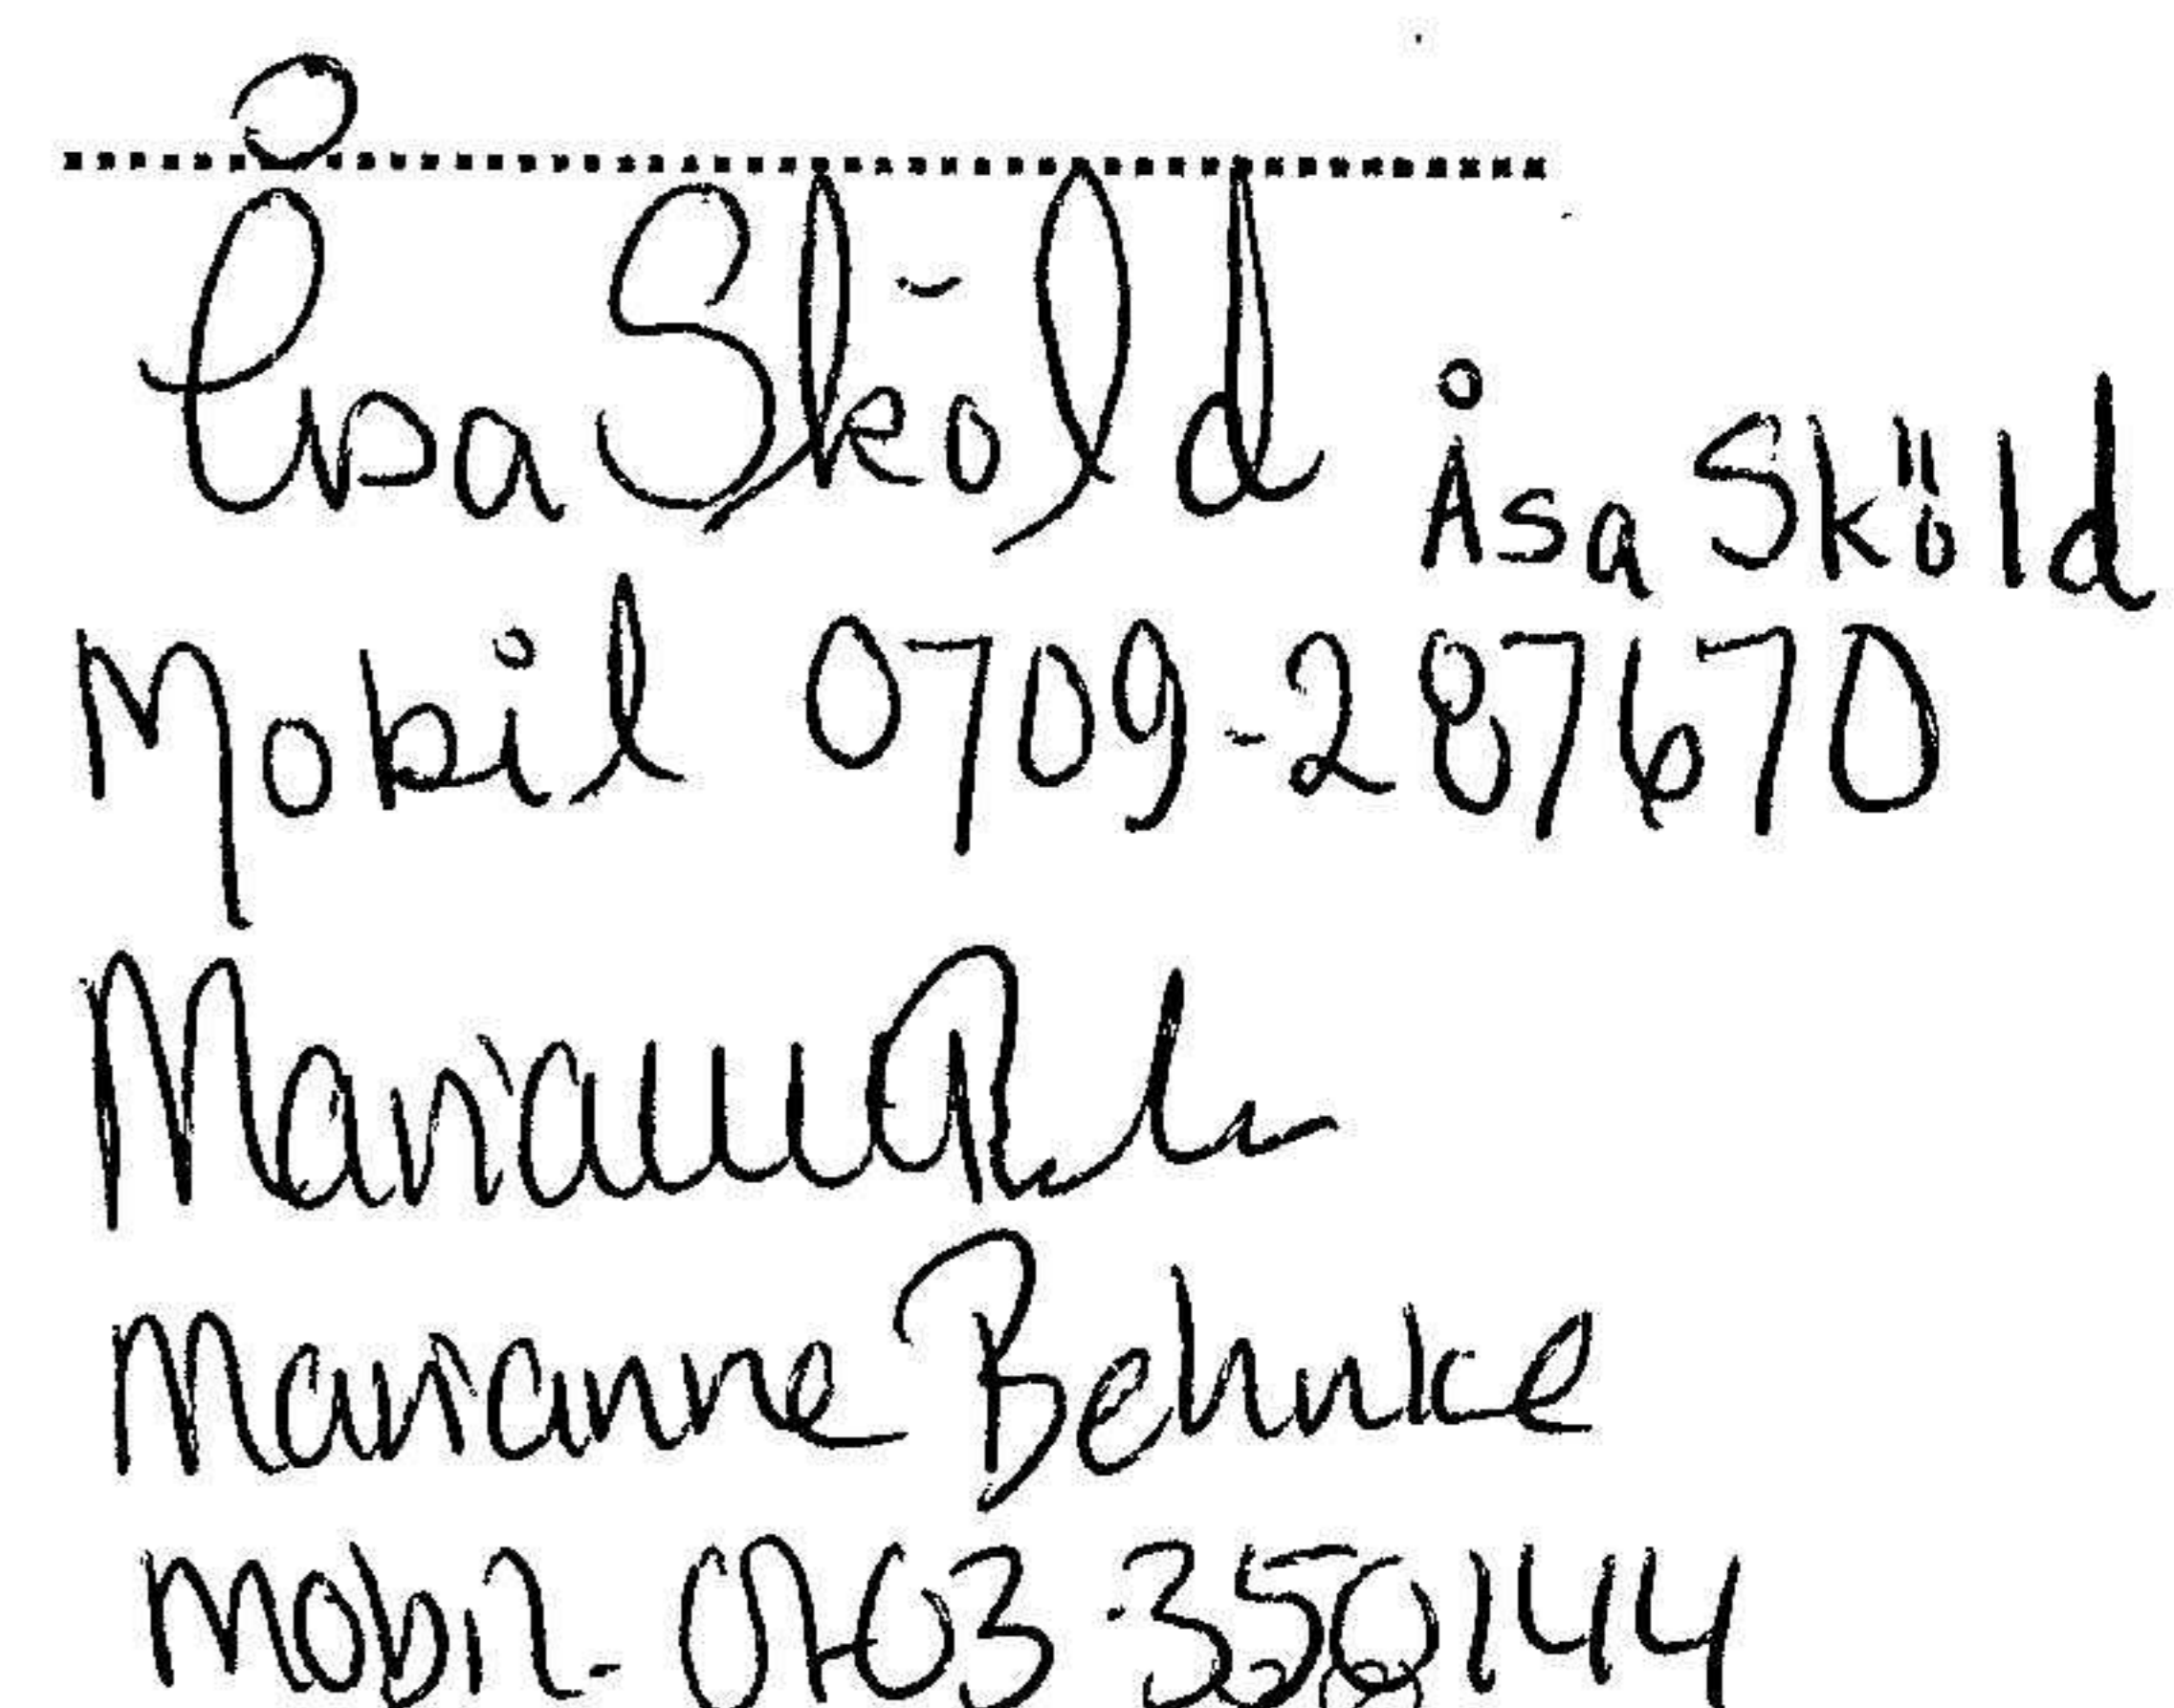 Åsa Sköld Åsa Sköld
Mobil 0709-287670
Marianne
Marianne Behnke
Mobil 0703